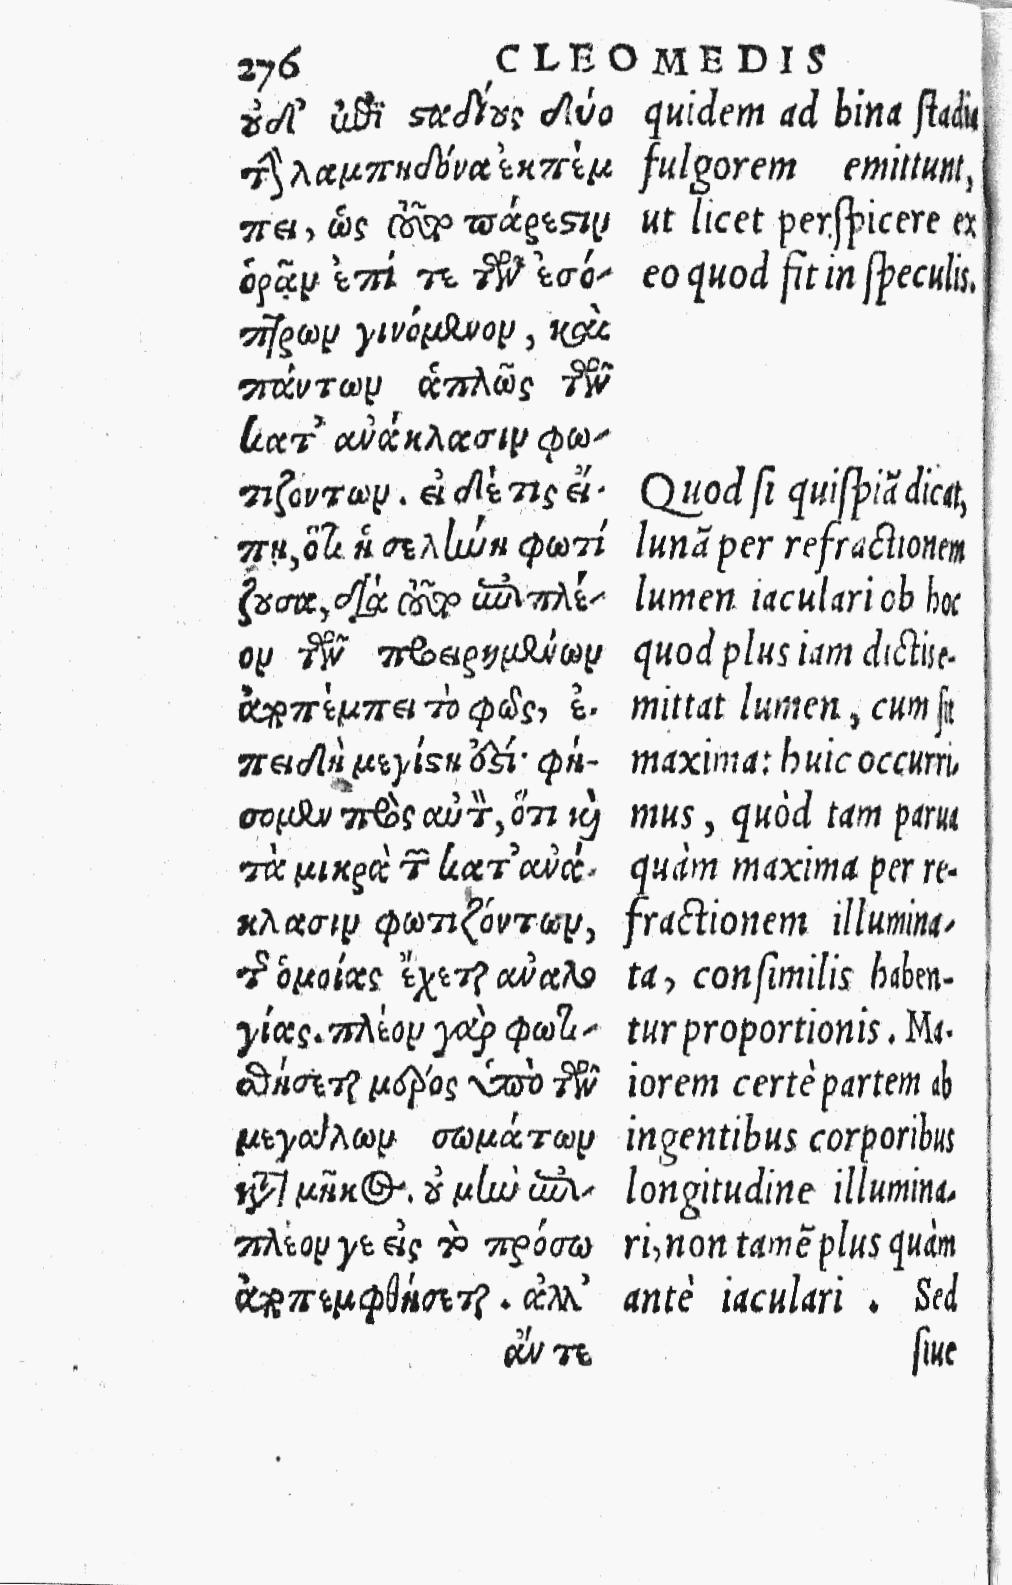 276 CLEOMEDIS
οὐδ' ἐπὶ σταδίους δύο
τὴν λαμπηδόνα ἐκπέμ
πει, ὡς τοῦτο πάρεστιν
ὁρᾷν ἐπί τε τῶν ἐσό-
πτρων γινόμενον, καὶ
πάντων ἁπλῶς τῶν
κατ' ἀνάκλασιν φω-
τιζόντων. εἰ δὲ τις εἴ-
πῃ, ὅτι ἡ σελήνη φωτί
ζουσα, διὰ τοῦτο ἐπιπλέ-
ον τῶν προειρημένων
ἀποπέμπει τὸ φῶς, ἐ-
πειδὴ μεγίστη ἐστί· φή-
σομεν πρὸς αὐτὸν, ὅτι καὶ
τὰ μικρὰ τῶν κατ' ἀνά-
κλασιν φωτιζόντων,
τῆς ὁμοίας ἔχεται ἀναλο
γίας. πλέον γὰρ φωτι-
σθήσεται μέρος ὑπὸ τῶν
μεγάλων σωμάτων
κατὰ μῆκος. οὐ μὴν ἐπι-
πλέον γε εἰς τὸ πρόσω
ἀποπεμφθήσεται. ἀλλ'
ἄν τε
quidem ad bina ſtadia
fulgorem emittunt,
ut licet perſpicere ex
eo quod fit in ſpeculis.
Quod ſi quiſpiã dicat,
lunã per refractionem
lumen iaculari ob hoc
quod plus iam dictis e-
mittat lumen, cum ſit
maxima: huic occurri-
mus, quòd tam parua
quàm maxima per re-
fractionem illumina-
ta, conſimilis haben-
tur proportionis. Ma-
iorem certè partem ab
ingentibus corporibus
longitudine illumina-
ri, non tamẽ plus quàm
antè iaculari. Sed
ſiue